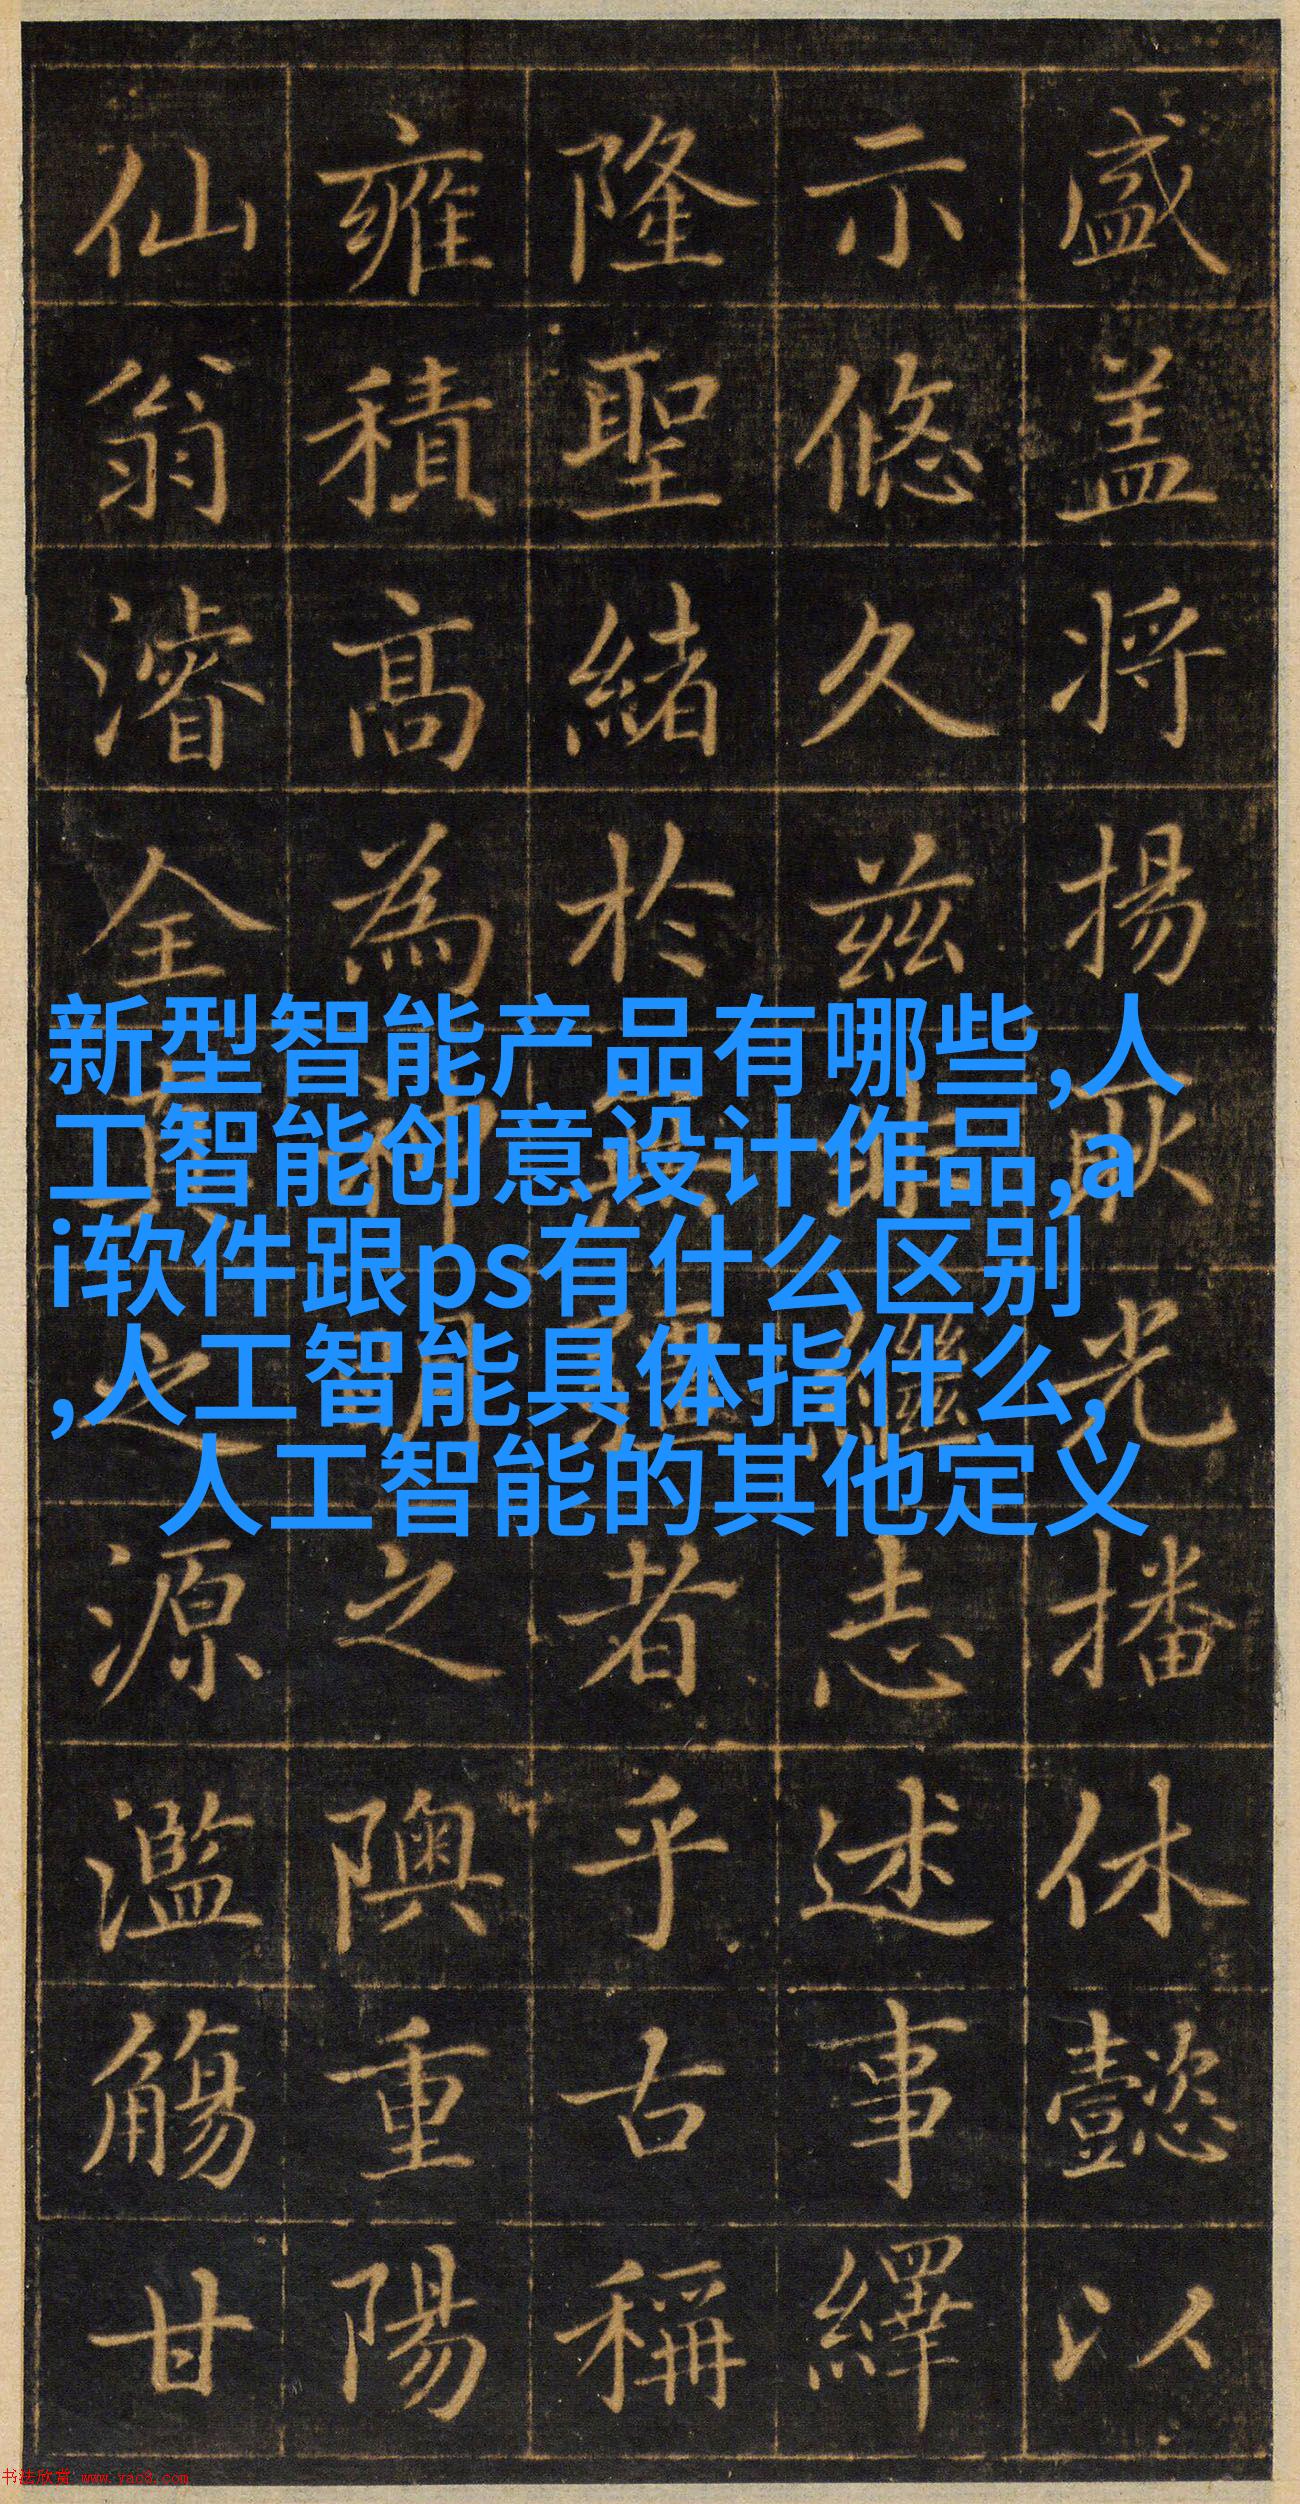 盛盖将揚耿光播休懿以
示悠久兹非繼志述事繹
隆聖緒於疆者乎古稱
雍積高為神明之隩重陽
仙翁濬全真之源濫觴甘
新型智能产品有哪些,人
工智能创意设计作品,a
i软件跟ps有什么区别
,人工智能具体指什么,
人工智能的其他定义
书法欣赏 www.yac8.com